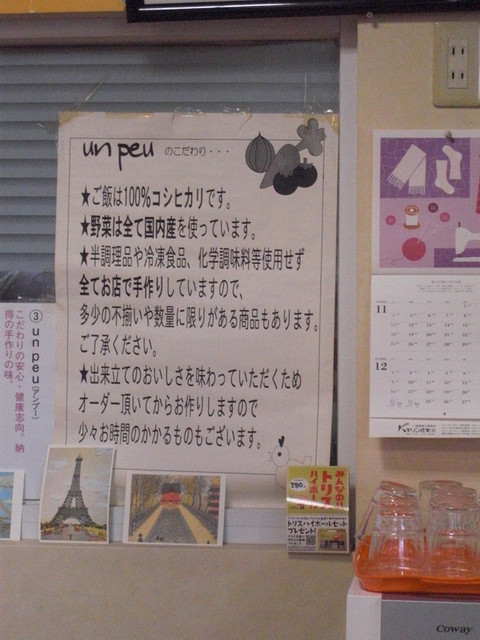 un peu のこだわり・・・
★ご飯は100%コシヒカリです。
★野菜は全て国内産を使っています。
★半調理品や冷凍食品、化学調味料等使用せず
全てお店で手作りしていますので、
多少の不揃いや数量に限りがある商品もあります。
ご了承ください。
★出来立てのおいしさを味わっていただくため
オーダー頂いてからお作りしますので
少々お時間のかかるものもございます。
③ un peu(アンプー)
こだわりの安心・健康志向。納
得の手作りの味。
11
12
みんなの!!
トリス
ハイボール
290
トリスハイボールセット
プレゼント!
Coway